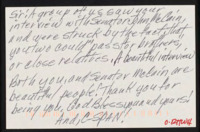 Sir: A group of us saw your
interview with Senator John McCain,
and were struck by the fact that
you two could pass for brothers,
or close relatives. A beautiful interview
Both you, and Senator McCain are
beautiful people. Thank you for
being you. God Bless you and yours!
And, C-SPAN!